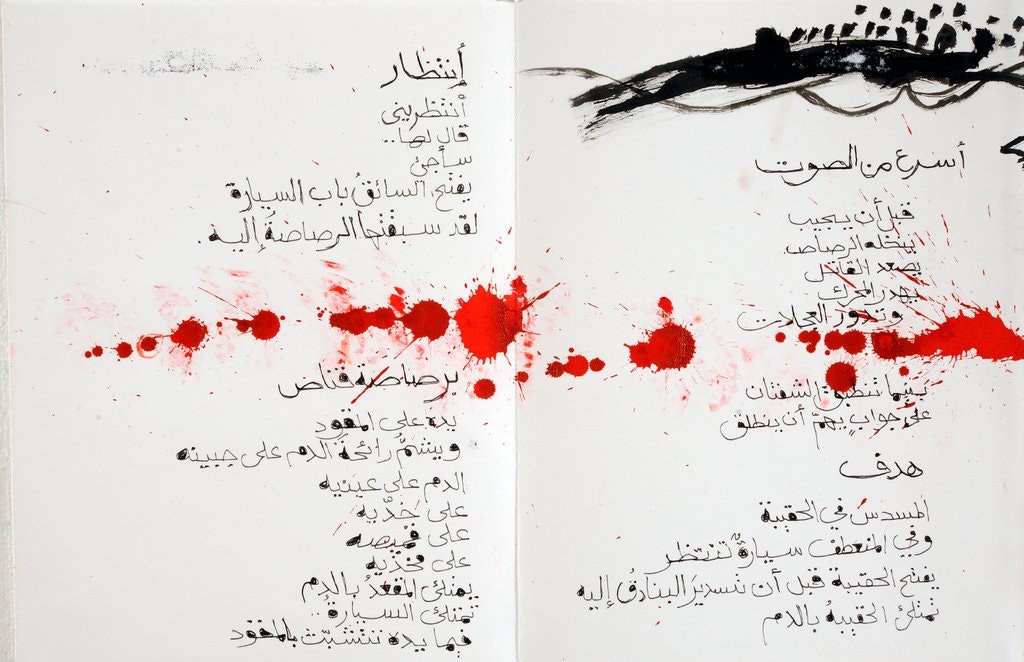 أسرع من الصوت
قبل أن يجيب
ينخله الرصاص
يصعد القاتل
يهدر المحرك
وتدور العجلات
بينما تنطبق الشفتان
على جوابٍ يهمّ أن ينطلق
هدف
المسدس في الحقيبة
وفي المنعطف سيارةٌ تنتظر
يفتح الحقيبة قبل أن تستدير البنادقُ إليه
تمتلئ الحقيبةُ بالدم
أنتظار
أنتظريني
قال لها..
سأجئ
يفتح السائقُ باب السيارة
لقد سبقتها الرصاصةُ إليه.
برصاصة قناص
يده على المقود
ويشمُّ رائحة الدم على جبينه
الدم على عينيه
على خدّيه
على قميصه
على فخذيه
يمتلئ المقعدُ بالدم
تمتلئ السيارةُ..
فيما يده تتشبّث بالمقود